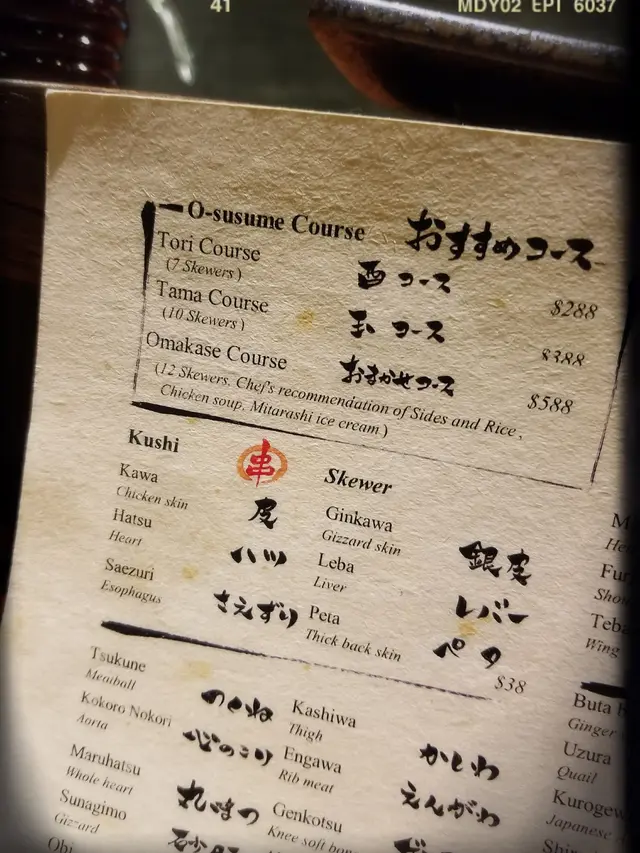 41
MDY02 EPT 6037
O-susume Course おすすめコース
Tori Course 酉コース $288
(7 Skewers)
Tama Course 玉コース $388
(10 Skewers)
Omakase Course おまかせコース $588
(12 Skewers, Chef's recommendation of Sides and Rice,
Chicken soup, Mitarashi ice cream)
Kushi 串 Skewer
Kawa 皮
Chicken skin
Ginkawa 銀皮
Gizzard skin
Hatsu ハツ
Heart
Leba レバー
Liver
Saezuri さえずり
Esophagus
Peta ペタ
Thick back skin
$38
Tsukune つくね
Meatball
Kashiwa かしわ
Thigh
Kokoro Nokori 心のこり
Aorta
Engawa えんがわ
Rib meat
Maruhatsu 丸はつ
Whole heart
Genkotsu
Knee soft
Sunagimo
Gizzard
Wing
Buta
Ginger
Uzura
Quail
Japanese